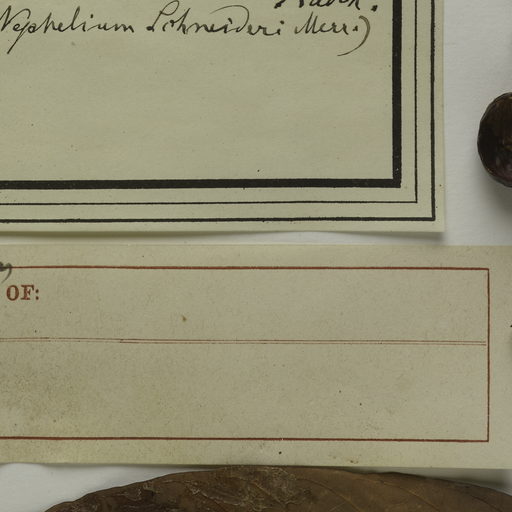 Radlk.
Nephelium Schneideri Merr.)
OF: